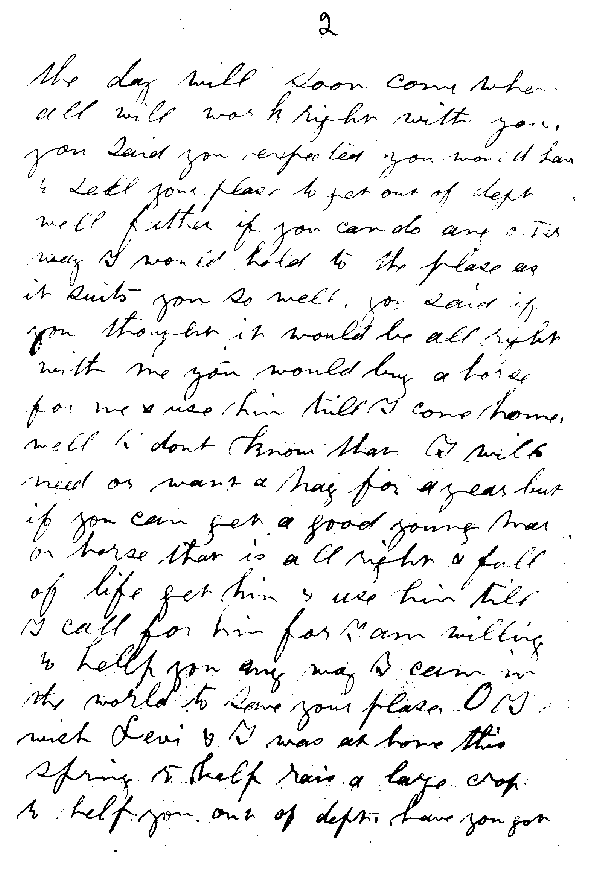 2
the day will soon come when
all will work right with you.
you said you expected you would hav
to sell your plase to get out of dept
well father if you can do any other
way I would hold to the plase as
it suits you so well. you said if
you thought it would be all right
with me you would buy a horse
for me & use him till I come home.
well I dont know that I will
need or want a nag for a year but
if you can get a good young mar
or horse that is all right & full
of life get him & use him till
I call for him for I am willing
to hellp you any way I can in
the world to save your plase. O I
wish Levi & I was at home this
spring to help rais a large crop
to help you out of dept. have you got